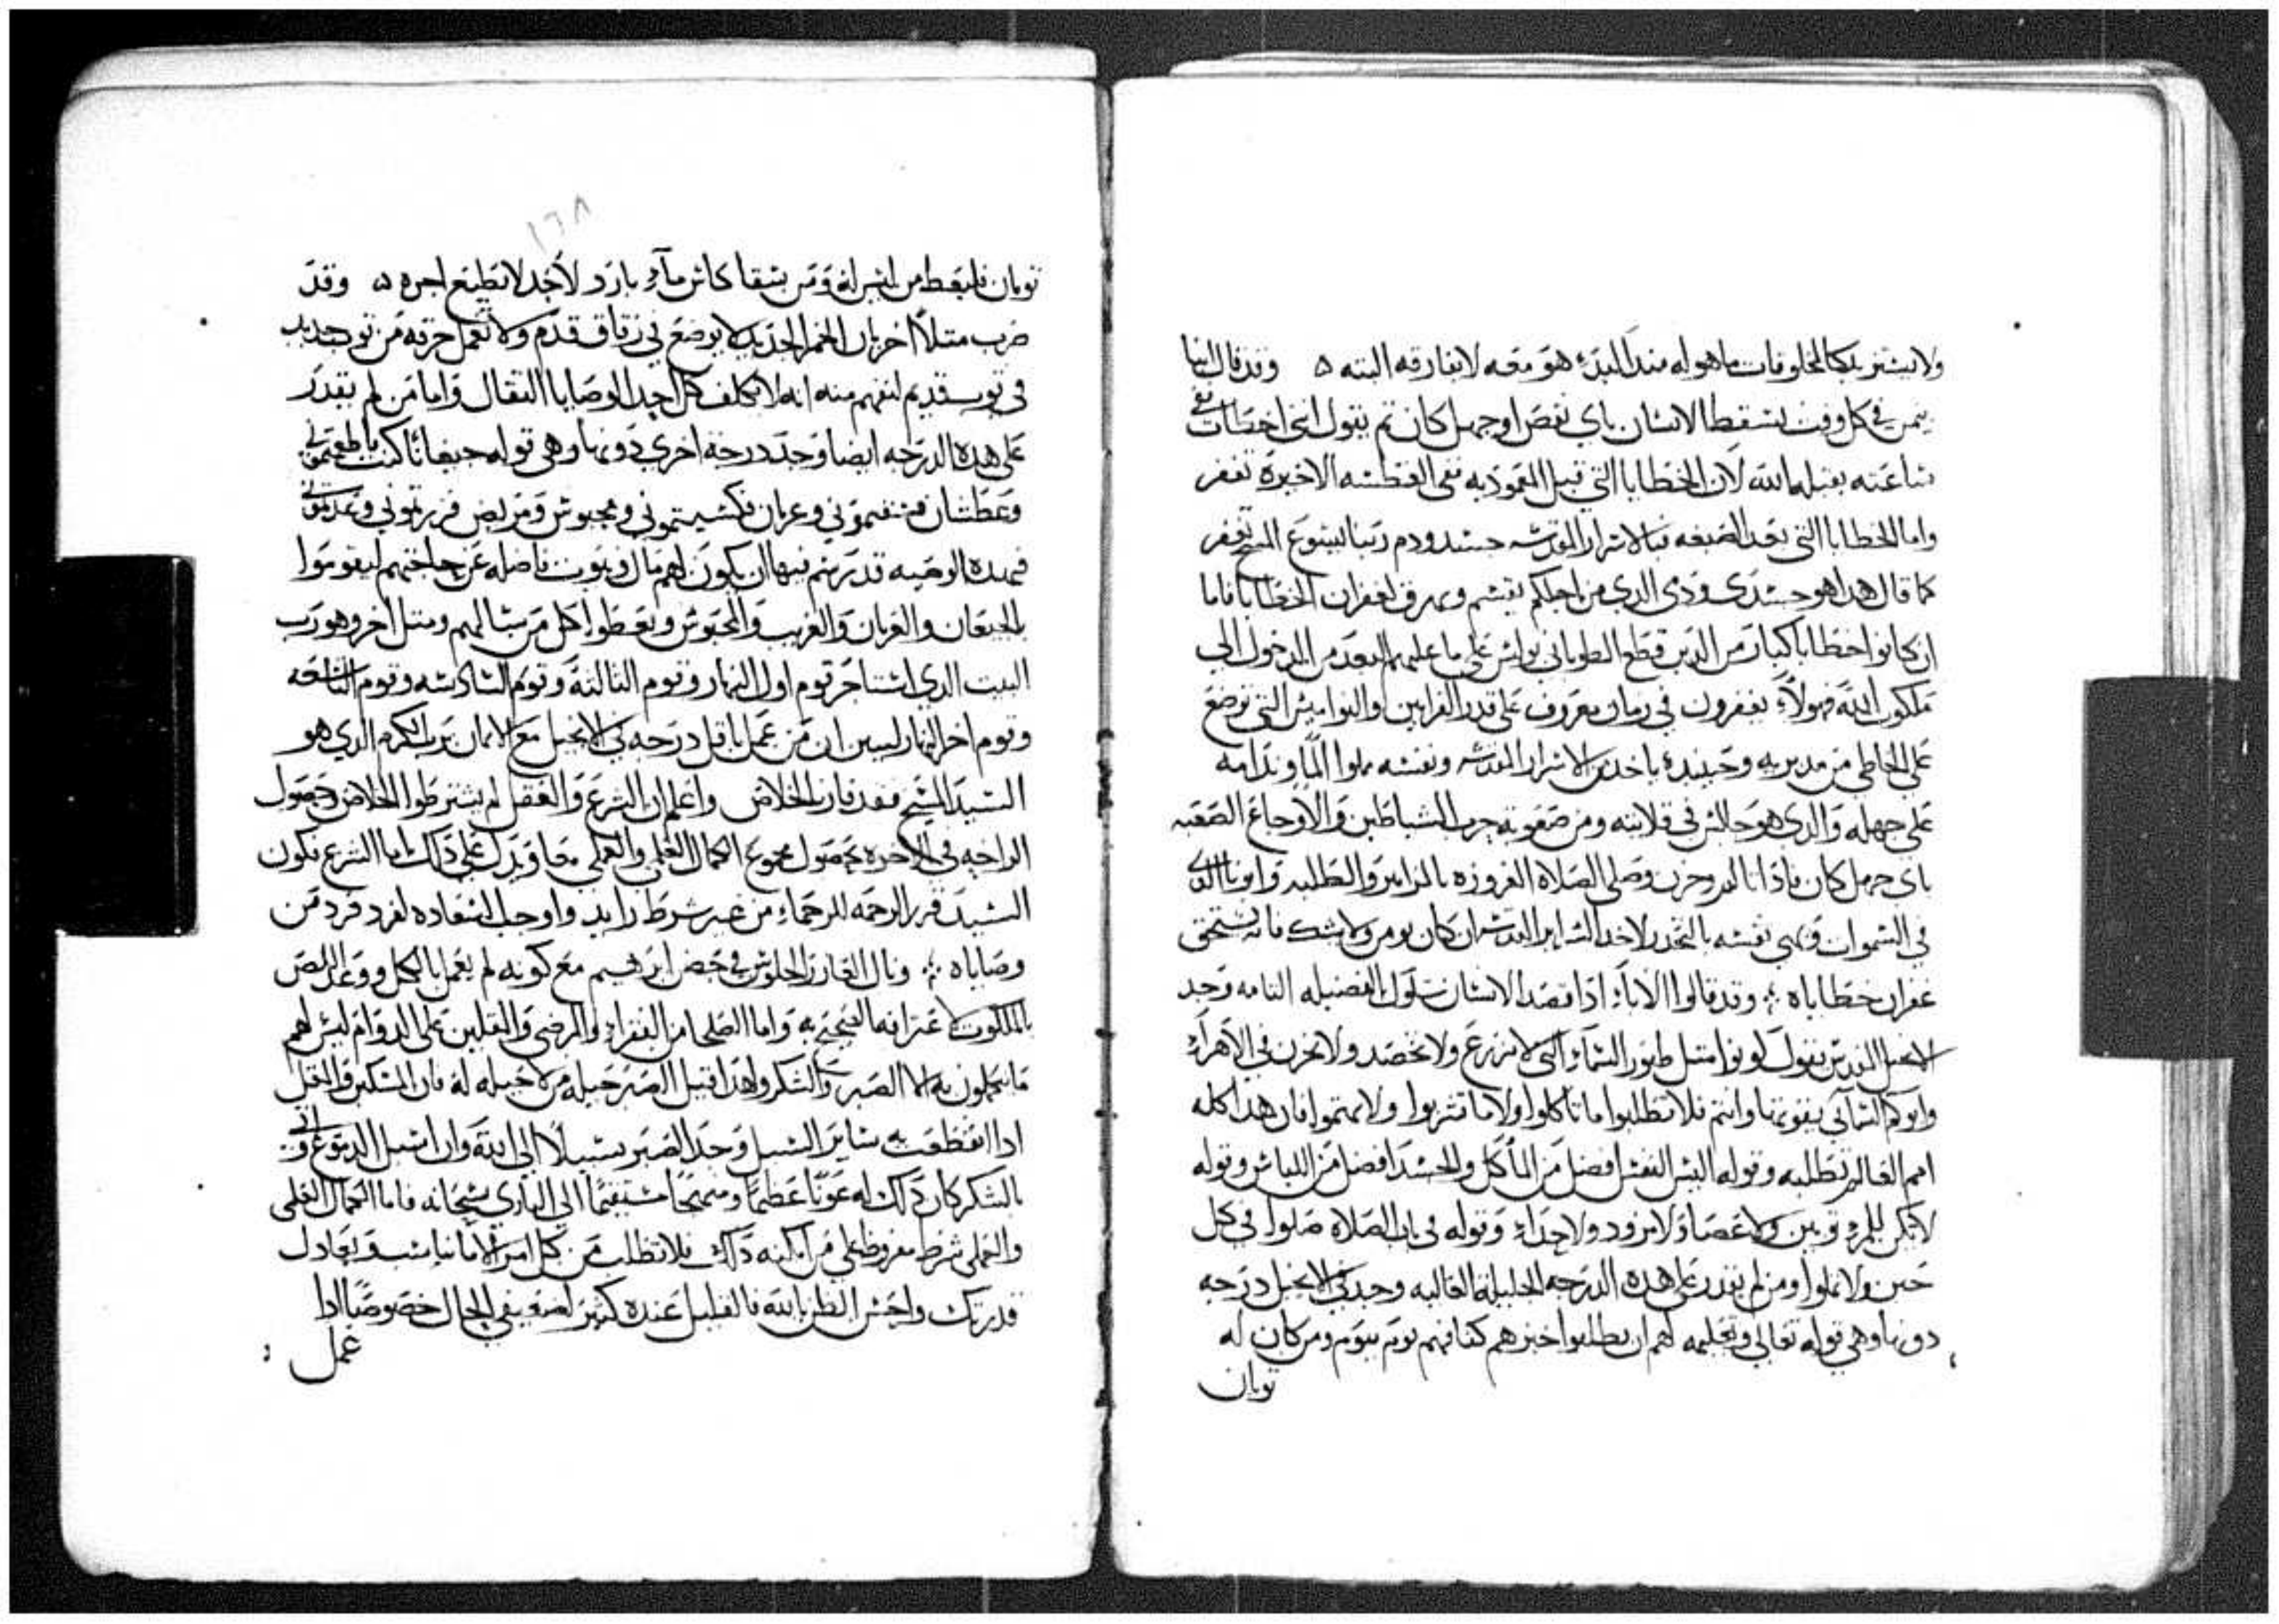 ولا يستزيد كالمخلوقات ما هو له منذ البدء هو معه لا يفارقه البته ه وقد قال انبا
يمن في كل وقت يسقط الانسان باي نقص او جهل كان ثم يقول انني اخطات ففي
ساعته يقبله الله لان الخطايا التي قبل المعموديه ففي الغطسه الاخيرة تغفر
واما الخطايا التي بعد الصبغه فبالاسرار المقدسه جسد ودم ربنا يسوع المسيح تغفر
كما قال هدا هو جسدي ودمي الدي من اجلكم يقسم ويهرق لغفران الخطايا فاما
ان كانوا خطايا كبار من الدين قطع الطوباني بولس على عامليهم البعد من الدخول الى
ملكوت الله فهولاء يغفرون في زمان معروف على قدر القرابين والنواميس التي توضع
على الخاطي من مدبريه وحينيد ياخد من الاسرار المقدسه ونفسه مملوا الما وندامه
على جهله والدي هو جالس في قلايته ومن صعوبة حرب الشياطين والاوجاع الصعبه
باي جهل كان فادا تالم وحزن وصلى الصلاة المفروزه بالمزامير والطلبه وابونا الدي
في السموات وهيى نفسه بالتحدر لاخد السراير المقدسه ان كان يومن ولا يشك فانه يستحق
غفران خطاياه ؞ وقد قالوا الاباء ادا قصد الانسان سلوك الفضيله التامه وجد
الانجيل المقدس يقول كونوا مثل طيور السماء التي لا تزرع ولا تحصد ولا تخزن في الاهراء
وابوكم السمائي يقوتها وانتم فلا تطلبوا ما تاكلوا ولا ما تشربوا ولا تهتموا فان هدا كله
امم العالم تطلبه وقوله اليس النفس افضل من الماكل والجسد افضل من اللباس وقوله
لا يكن للمرء توبين ولا عصا ولا مزود ولا حداء وقوله في باب الصلاة صلوا في كل
حين ولا تملوا ومن لم يقدر على هده الدرجه الجليلة العاليه وجد في الانجيل درجه
دونها وهي قوله تعالى وتعليمه لهم ان يطلبوا خبزهم كفافهم يوم بيوم ومن كان له
توبان
١٦٨
توبان فليعط من ليس له ومن يسقا كاس مآء بارد لاجد لا يضيع اجره ه وقد
ضرب متلا اخر بان الخمر الجديد لا يوضع في زقاق قدم ولا تعمل خرقه من توب جديد
في توب قديم لنفهم منه انه لا يكلف كل احد الوصايا الثقال واما من لم يقدر
على هده الدرجه ايضا وجد درجة اخرى دونها وهي قوله جيعانا كنت فاطعمتموني
وعطشان فسقيتموني وعريان فكسيتموني ومحبوس ومريض فزرتموني وعدتموني
فهده الوصيه قدر يتم فيها ان يكون لهم مال وبيوت فاضله عن حاجتهم ليقوموا
بالجيعان والعريان والغريب والمحبوس ويعطوا كل من سالهم ومثل اخر وهو رب
البيت الدي استاجر قوم اول النهار وقوم الثالثة وقوم السادسه وقوم التاسعه
وقوم اخر النهار ليبين ان من عمل باقل درجه في الانجيل مع الايمان برب الكرم الدي هو
السيد المسيح فقد فاز بالخلاص واعلم ان الشرع والعقل لم يشترطوا الخلاص وحصول
الراحه في الاخره بحصول مجموع الكمال العلمي والعملي معا ويدل على دلك اما الشرع فكون
السيد قرر الرحمه للرحماء من غير شرط زايد واوجب السعاده لفرد فرد من
وصاياه ؞ ونال العازر الجلوس في حضن ابرهيم مع كونه لم يعمل بالكل ووعد اللص
بالملكوت لاعترافه الصحيح به واما الصلحا من الفقراء والمرضى والمقلين على الدوام ليس لهم
ما يعملون به الا الصبر والشكر ولهدا قيل الصبر حيله من لا حيله له فان المسكين والمقل
ادا انقطعت به ساير السبل وجد الصبر سبيلا الى الله وان اسبل الدموع
بالشكر كان دلك له عونا عظيما ومنهجا مستقيما الى الباري سبحانه فاما الكمال العلمي
والعملي شرط مفروض على من امكنه دلك فلا تطلب من كل امر الا ما يناسب ويعادل
قدرتك واحسن الظن بالله فالقليل عنده كثير لضعيفي الحال خصوصا ادا
عمل